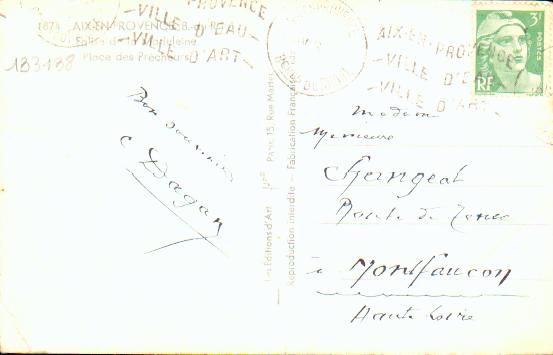 187
AIX-EN-PROVENCE (B.-du-R.)
Eglise de la Madeleine
Place des Prêcheurs
133-138
PROVENCE
- VILLE D'EAU -
- VILLE D'ART -
AIX-EN-PROVENCE
- VILLE D'EAU
- VILLE D'ART -
3F
POSTES
RF
Bon souvenir
C Dagan
Les Editions d'Art
Paris, 15, Rue Martel
Reproduction interdite - Fabrication Française
Madame
Monsieur
Chengeat
Route de
à Montfaucon
Haute Loire